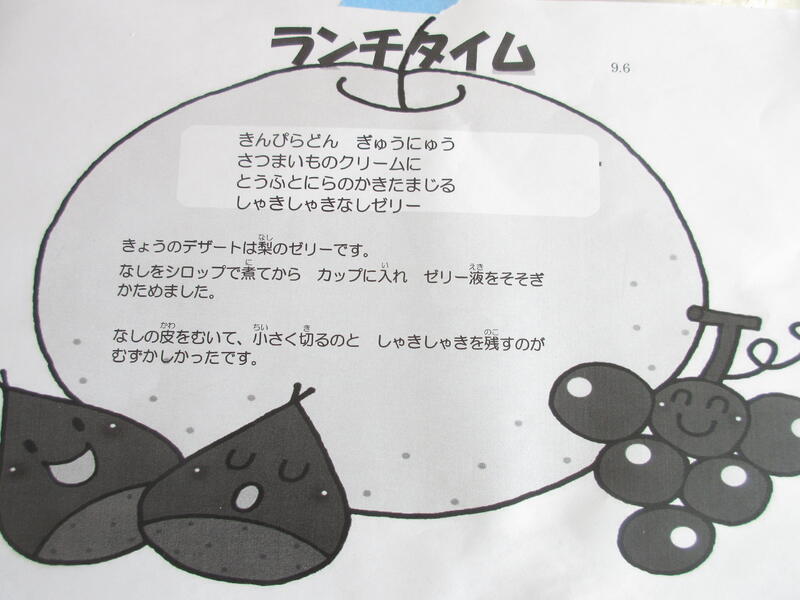 ランチタイム
9.6
きんぴらどん　ぎゅうにゅう
さつまいものクリームに
とうふとにらのかきたまじる
しゃきしゃきなしゼリー
きょうのデザートは梨のゼリーです。
なしをシロップで煮てから　カップに入れ　ゼリー液をそそぎ
かためました。
なしの皮をむいて、小さく切るのと　しゃきしゃきを残すのが
むずかしかったです。